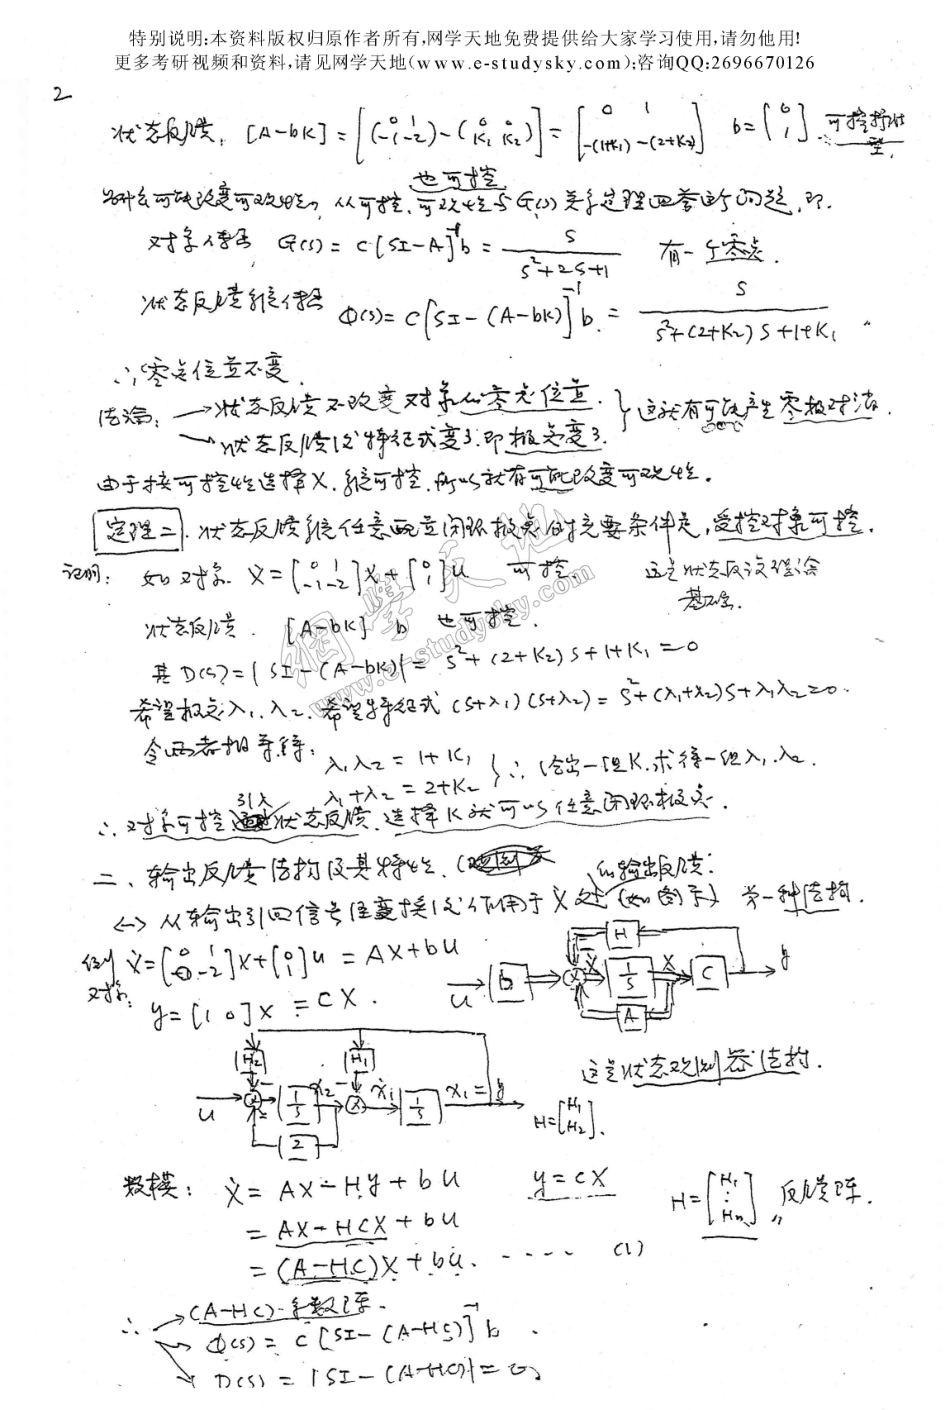 特别说明:本资料版权归原作者所有,网学天地免费提供给大家学习使用,请勿他用!
更多考研视频和资料,请见网学天地(www.e-studysky.com);咨询QQ:2696670126
2
状态反馈, [A-bK] = [(0 1; -1 -2) - (0 0; K₁ K₂)] = [0 1; -(1+K₁) -(2+K₂)] b=[0; 1] 可控标准型.
也可控
为什么可能改变可观性? 从可控、可观性与G(s)关系定理回答这个问题,即.
对象传函 G(s) = C[SI-A]⁻¹b = S/(S²+2S+1) 有一个零点.
状态反馈系统传函 Φ(s) = C[SI-(A-bK)]⁻¹b = S/(S²+(2+K₂)S+1+K₁)
∴零点位置不变
结论: → 状态反馈不改变对象的零点位置. } 这就有可能产生零极对消.
→ 状态反馈后特征式变了,即极点变了.
由于按可控性选择X, 系统可控, 所以就有可能改变可观性.
定理二 状态反馈系统任意配置闭环极点的充要条件是,受控对象可控.
证明: 如对象 Ẋ=[0 1; -1 -2]X+[0; 1]u 可控, 这是状态反馈理论基础.
状态反馈. [A-bK] b 也可控.
其D(s)=|SI-(A-bK)| = S²+(2+K₂)S+1+K₁=0
希望极点λ₁、λ₂, 希望特征式 (S+λ₁)(S+λ₂) = S²+(λ₁+λ₂)S+λ₁λ₂=0.
令两者相等得: λ₁λ₂ = 1+K₁
λ₁+λ₂ = 2+K₂ } ∴ 给出一组K,求得一组λ₁、λ₂.
∴ 对象可控引入状态反馈, 选择K就可以任意闭环极点.
二、输出反馈结构及其特性.
<一> 从输出引回信号经变换后作用于Ẋ处的输出反馈: (如图示) 第一种结构.
例 对象: Ẋ=[0 1; 0 -2]X+[0; 1]u = AX+bu
y=[1 0]X = CX.
H
u b Ẋ 1/S X C y
A
H₂ H₁
u 1/S x₂ ẋ₁ 1/S x₁=y
2
这是状态观测器结构.
H=[H₁; H₂].
数模: Ẋ = AX-Hy+bu y=CX H=[H₁; ⋮; Hn] 反馈阵.
= AX-HCX+bu
= (A-HC)X+bu. ---- (1)
∴ → (A-HC)-系数阵.
→ Φ(s) = C[SI-(A-HC)]⁻¹b.
→ D(s) = |SI-(A-HC)|=0,
網學天地
www.e-studysky.com